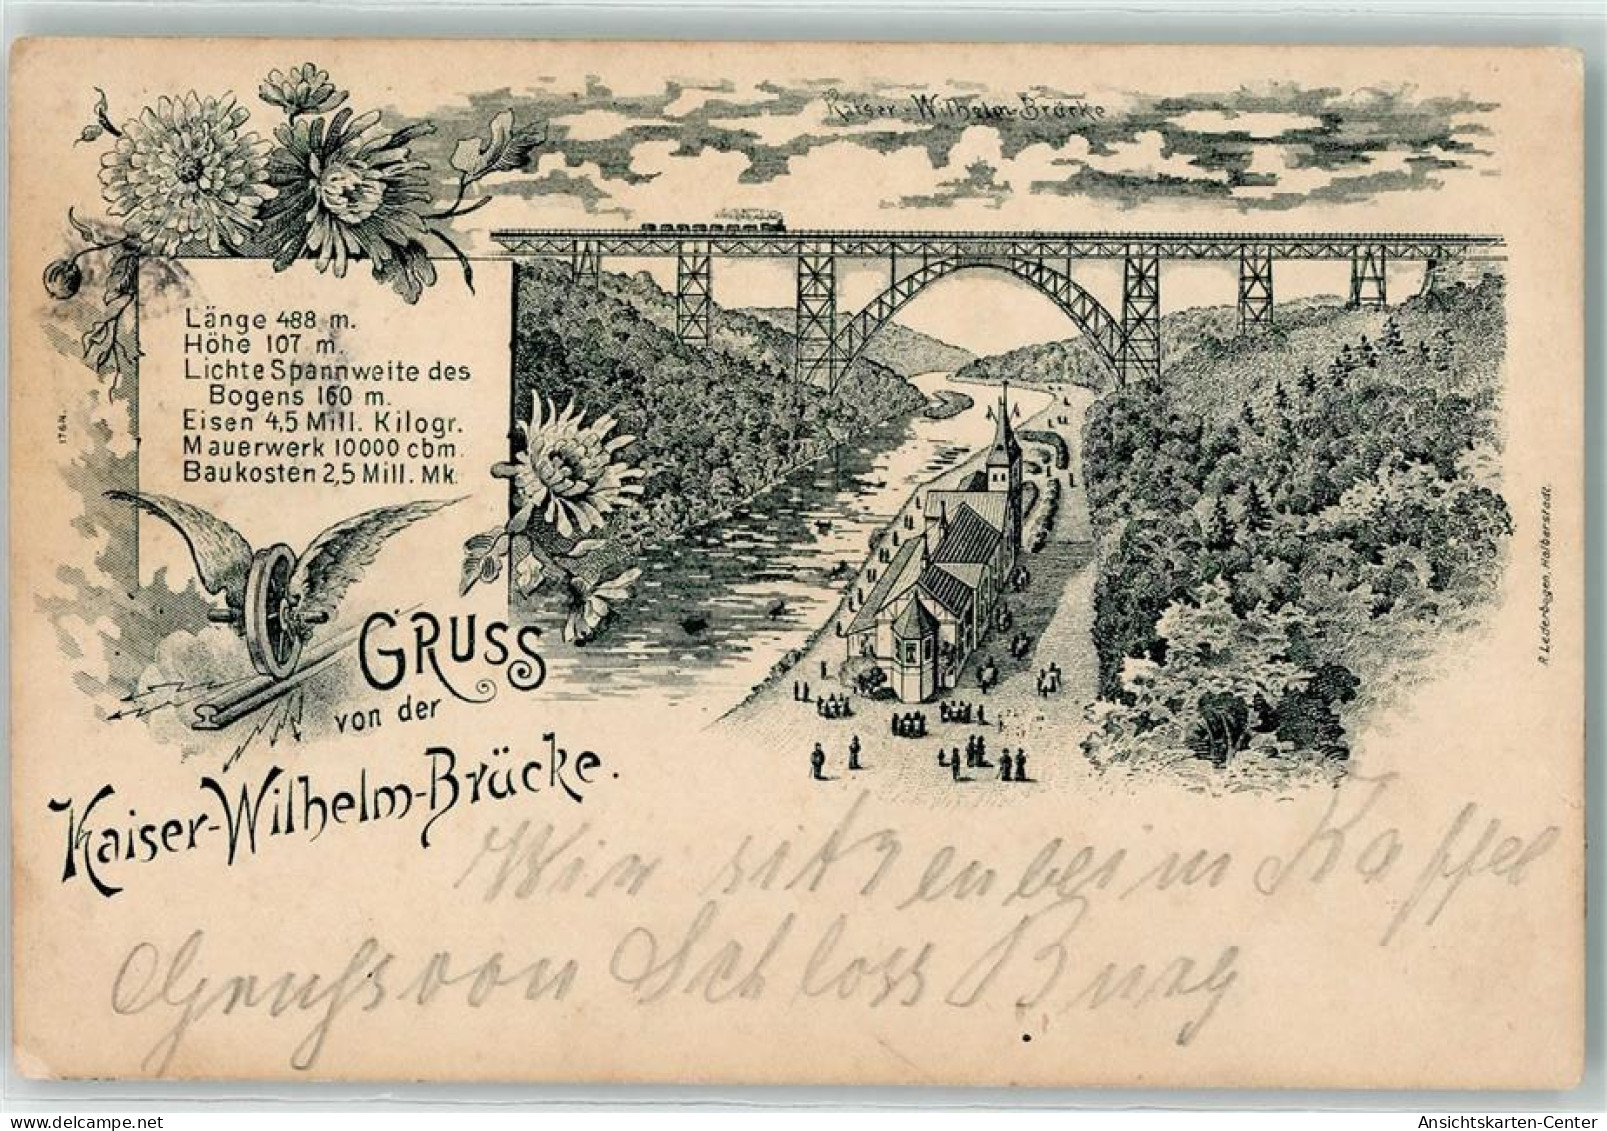 Kaiser-Wilhelm-Brücke
Länge 488 m.
Höhe 107 m.
Lichte Spannweite des
Bogens 160 m.
Eisen 4,5 Mill. Kilogr.
Mauerwerk 10000 cbm.
Baukosten 2,5 Mill. Mk.
1764.
GRUSS
von der
Kaiser-Wilhelm-Brücke.
R. Lederbogen, Halberstadt.
Wir sitzen beim Kaffee
Gruss von Schloss Burg
Ansichtskarten-Center